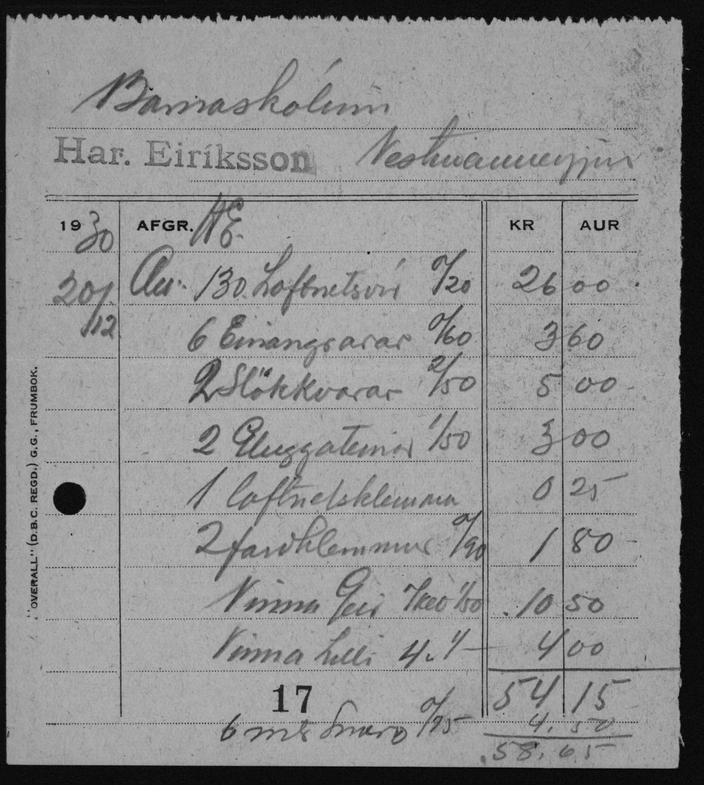 Barnaskólinn
Har. Eiríksson Vestmanneyjum
19 30 AFGR. HE. KR AUR
20/12 Au. 130 Loftnetsvír 0/20 26 00
6 Einangrarar 0/60 3 60
2 Slökkvarar 2/50 5 00
2 Gluggateinar 1/50 3 00
1 loftnetsklemma 0 25
2 jarðklemmur 0/90 1 80
Vinna Geir 7 1/50 10 50
Vinna Lilli 4. 1/- 4 00
17 54 15
6 mtr Snúra 0/75 4.50
58.65
"OVERALL" (D.B.C. REGD.) G.G., FRUMBOK.